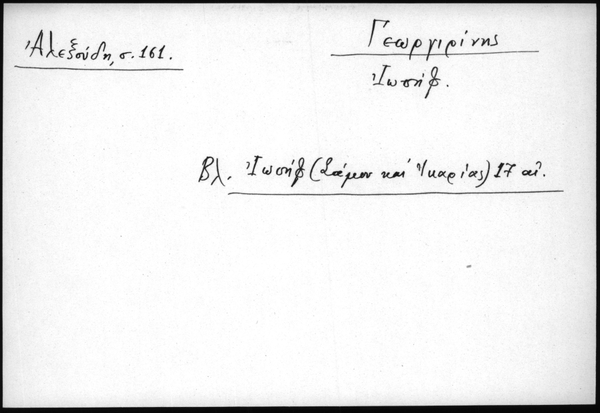 Ἀλεξούδη, σ. 161.
Γεωργιρίνης
Ἰωσήφ.
Βλ. Ἰωσήφ (Σάμου καί Ἰκαρίας) 17 αἰ.